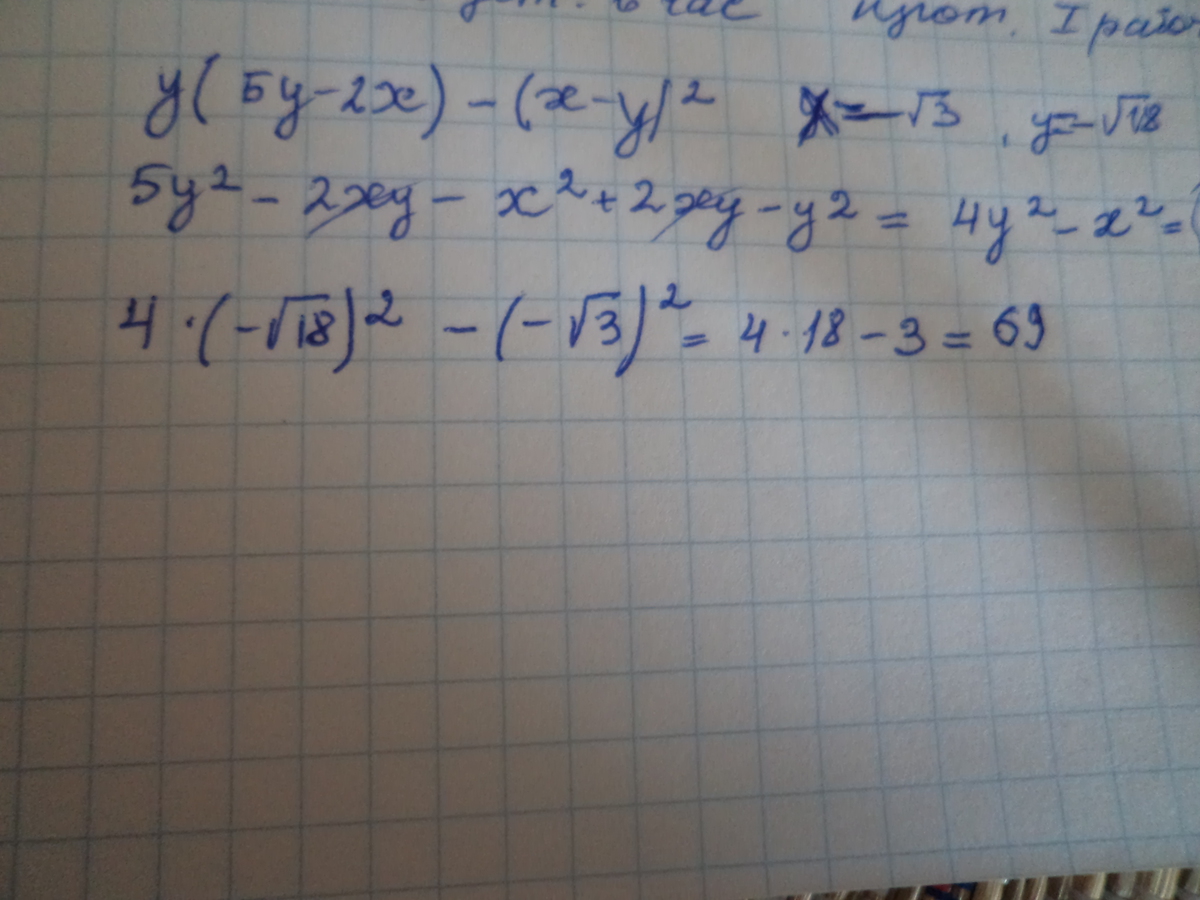 в час
I
y(5y-2x)-(x-y)² x=-√3, y=-√18
5y²-2xy-x²+2xy-y²=4y²-x²=(
4·(-√18)²-(-√3)²=4·18-3=69